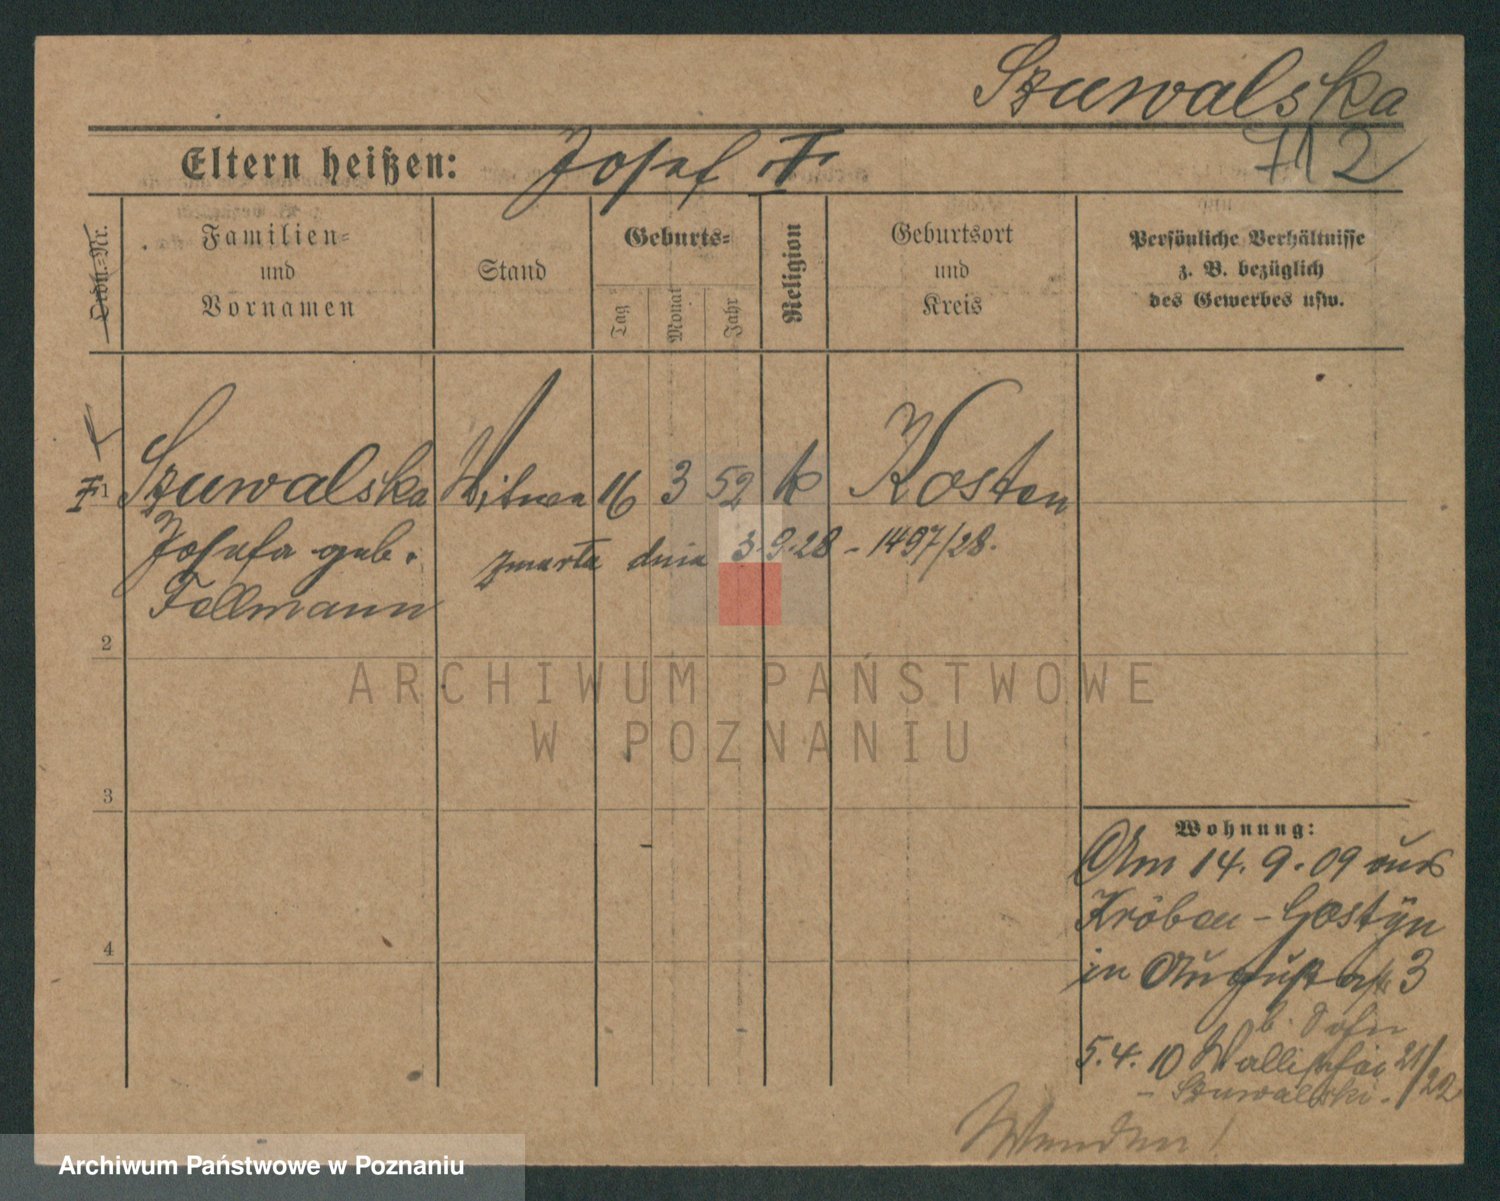 Szuwalska
712
Eltern heißen: Josef F
Ordn.-Nr.
Familien-
und
Vornamen
Stand
Geburts-
Tag
Monat
Jahr
Religion
Geburtsort
und
Kreis
Persönliche Verhältnisse
z. B. bezüglich
des Gewerbes usw.
1 Szuwalska Witwe 16 3 52 k Kosten
Josefa geb.
zmarła dnia 3.9.28 - 1497/28.
Fellmann
2
3
4
Wohnung:
Am 14.9.09 aus
Kröben - Gostÿn
in Augustastr 3
b. Sohn
5.4.10 Wallischei 21/22
- Szuwalski.
Wenden!
ARCHIWUM PAŃSTWOWE
W POZNANIU
Archiwum Państwowe w Poznaniu